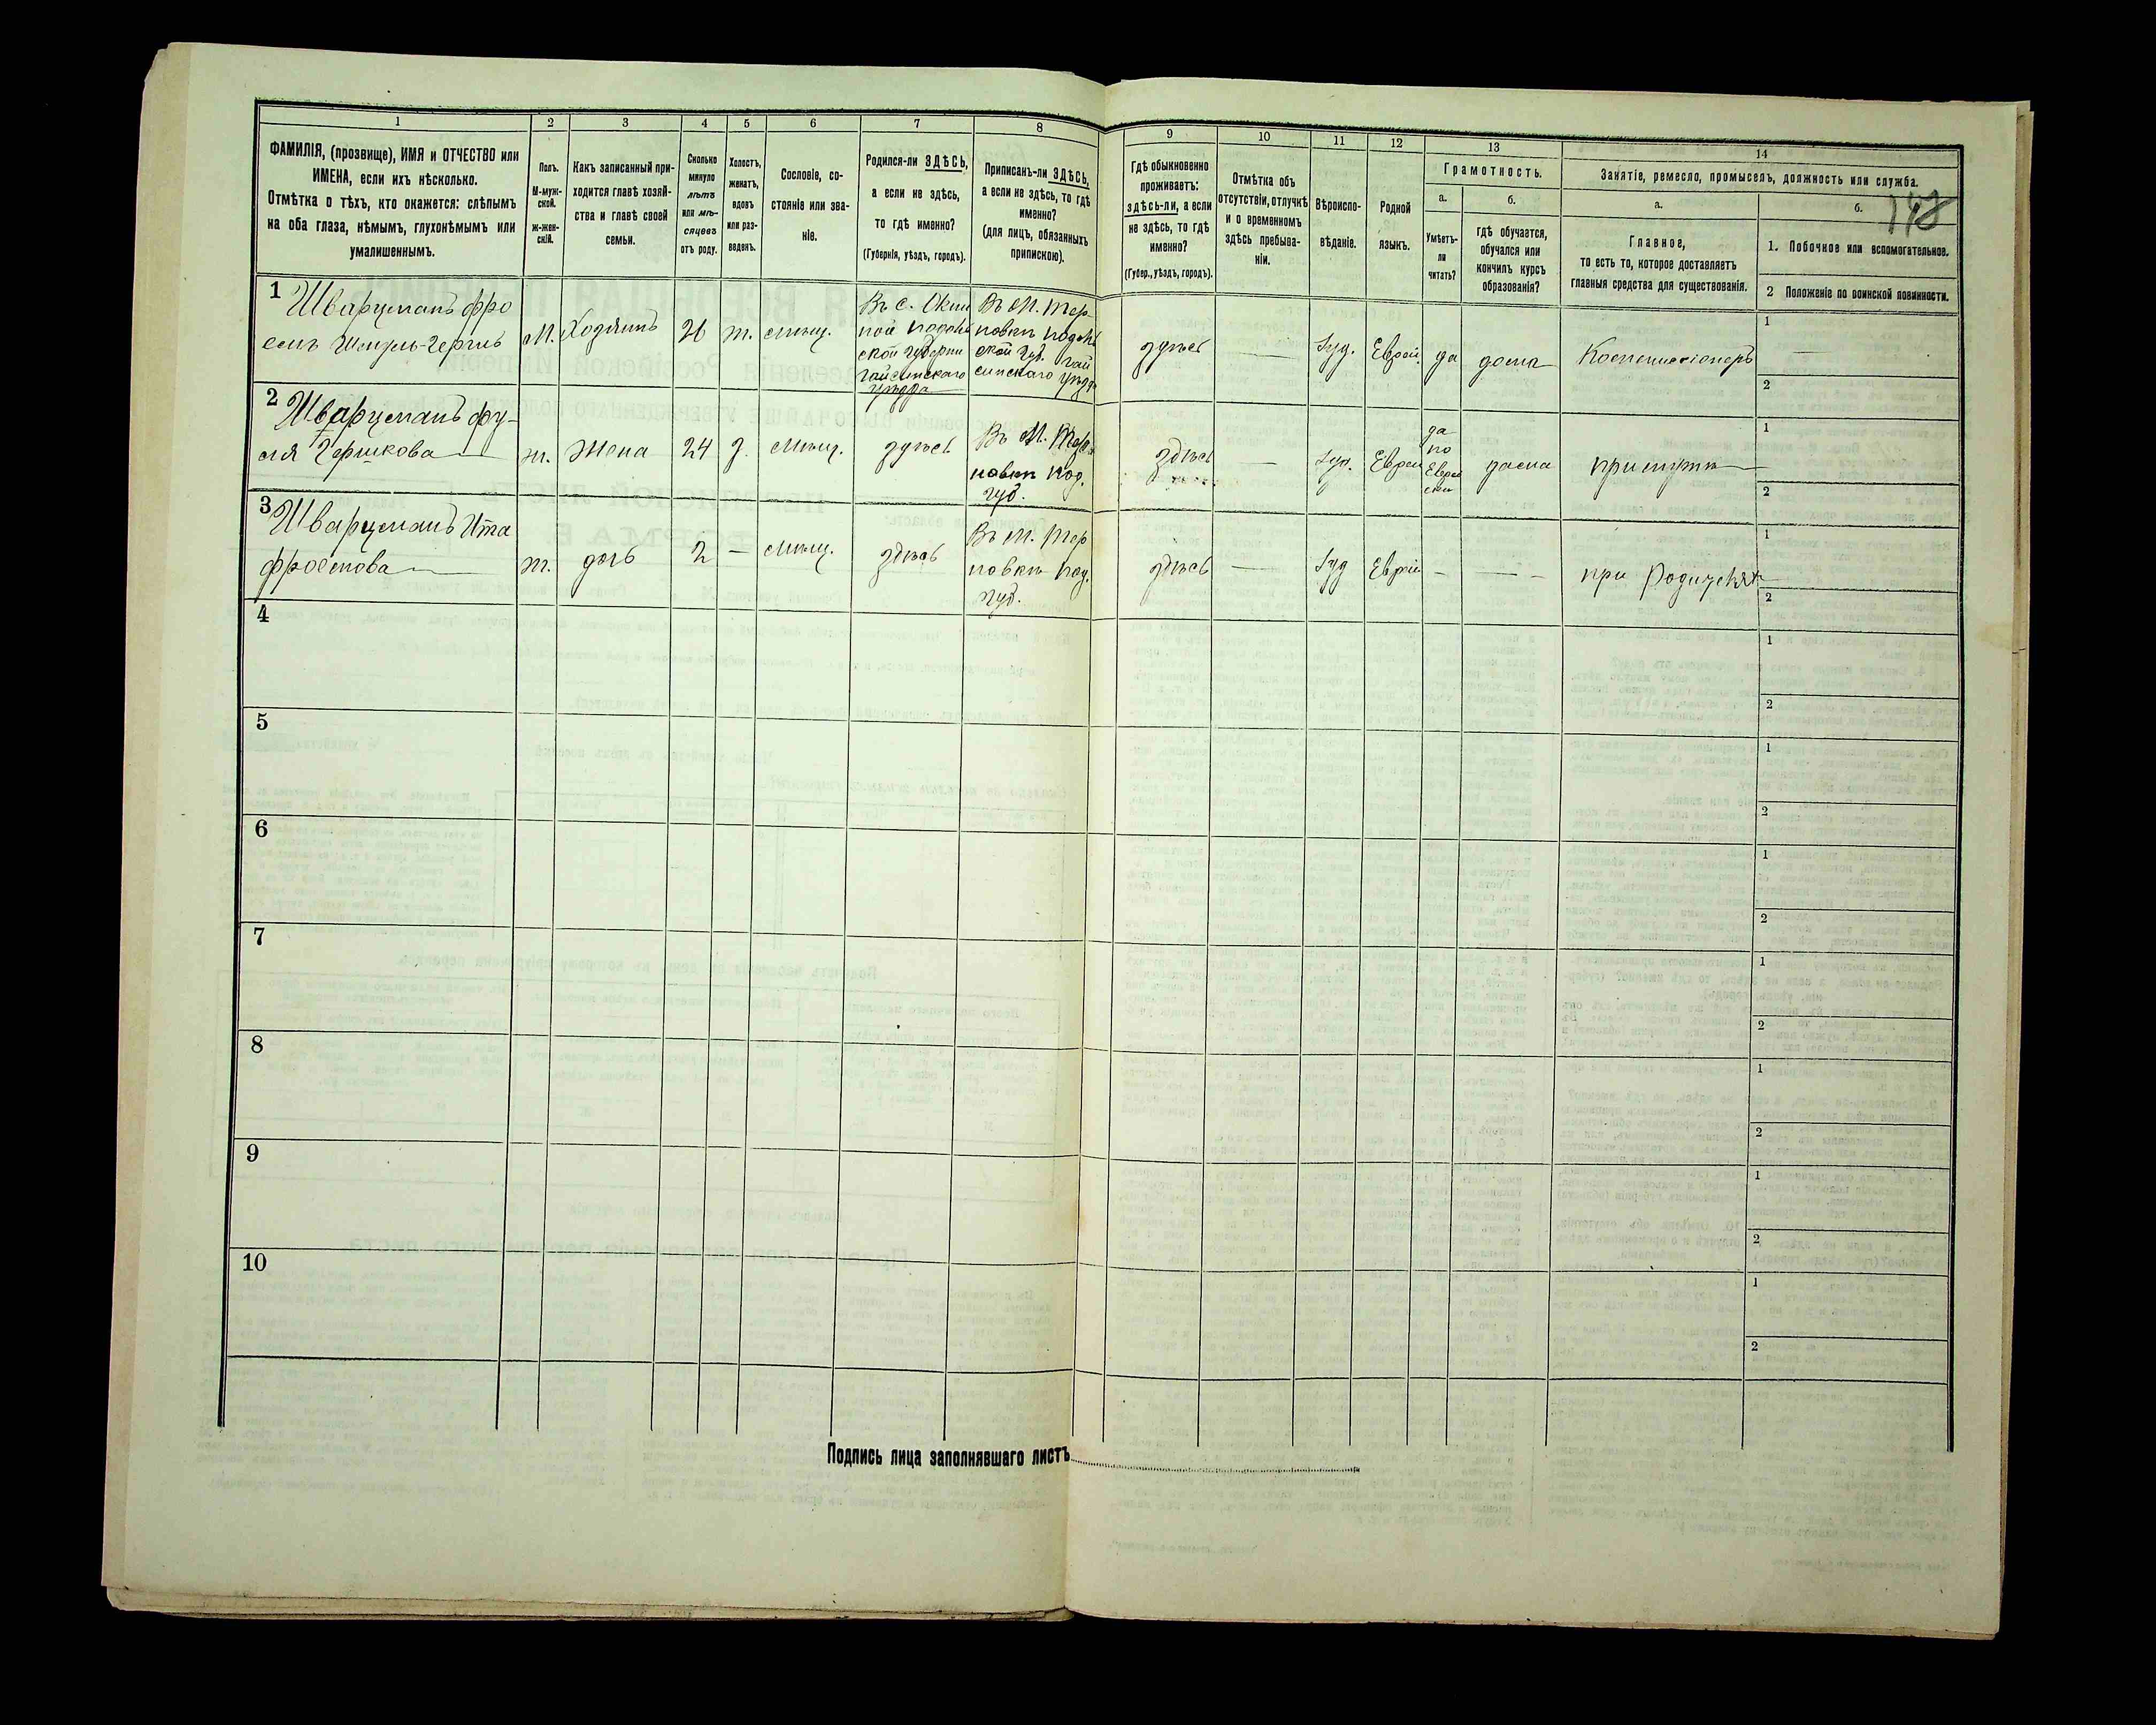 1 2 3 4 5 6 7 8 9 10 11 12 13 14
ФАМИЛІЯ, (прозвище), ИМЯ и ОТЧЕСТВО или
ИМЕНА, если ихъ нѣсколько.
Отмѣтка о тѣхъ, кто окажется: слѣпымъ
на оба глаза, нѣмымъ, глухонѣмымъ или
умалишеннымъ.
Полъ.
М-муж-
ской.
Ж-жен-
скій.
Какъ записанный при-
ходится главѣ хозяй-
ства и главѣ своей
семьи.
Сколько
минуло
лѣтъ
или мѣ-
сяцевъ
отъ роду.
Холостъ,
женатъ,
вдовъ
или раз-
веденъ.
Сословіе, со-
стояніе или зва-
ніе.
Родился-ли ЗДѢСЬ,
а если не здѣсь,
то гдѣ именно?
(Губернія, уѣздъ, городъ).
Приписанъ-ли ЗДѢСЬ,
а если не здѣсь, то гдѣ
именно?
(для лицъ, обязанныхъ
припискою).
Гдѣ обыкновенно
проживаетъ:
здѣсь-ли, а если
не здѣсь, то гдѣ
именно?
(Губер., уѣздъ, городъ).
Отмѣтка объ
отсутствіи, отлучкѣ
и о временномъ
здѣсь пребыва-
ніи.
Вѣроиспо-
вѣданіе.
Родной
языкъ.
Грамотность.
а.
Умѣетъ-
ли
читать?
б.
гдѣ обучается,
обучался или
кончилъ курсъ
образованія?
Занятіе, ремесло, промыселъ, должность или служба.
а.
Главное,
то есть то, которое доставляетъ
главныя средства для существованія.
б.
1. Побочное или вспомогательное.
2 Положеніе по воинской повинности.
1 Шварцманъ Фро
емъ Шмуль-Герш
М.
Хозяинъ
26
ж.
мѣщ.
Въ с.
ной Подоль
ской Губерни
Гайсинскаго
уѣзда
Въ М. Тер-
новкѣ Подоль
ской Губ. Гай
синскаго уѣзда
здѣсь
Іуд.
Еврей.
да
дома
Коммиссіонеръ
1
2
2 Шварцманъ Фру-
мя Гершкова
ж.
Жена
24
З.
мѣщ.
здѣсь
Въ М. Тер-
новкѣ Под.
губ.
здѣсь
Іуд.
Еврей
да
по
Еврей
ски
дома
при мужѣ
1
2
3 Шварцманъ Ита
Фроемова
ж.
дочь
2
мѣщ.
здѣсь
Въ М. Тер
новкѣ Под.
губ.
здѣсь
Іуд
Еврей
при Родителях
1
2
4
1
2
5
1
2
6
1
2
7
1
2
8
1
2
9
1
2
10
1
2
Подпись лица заполнявшаго листъ